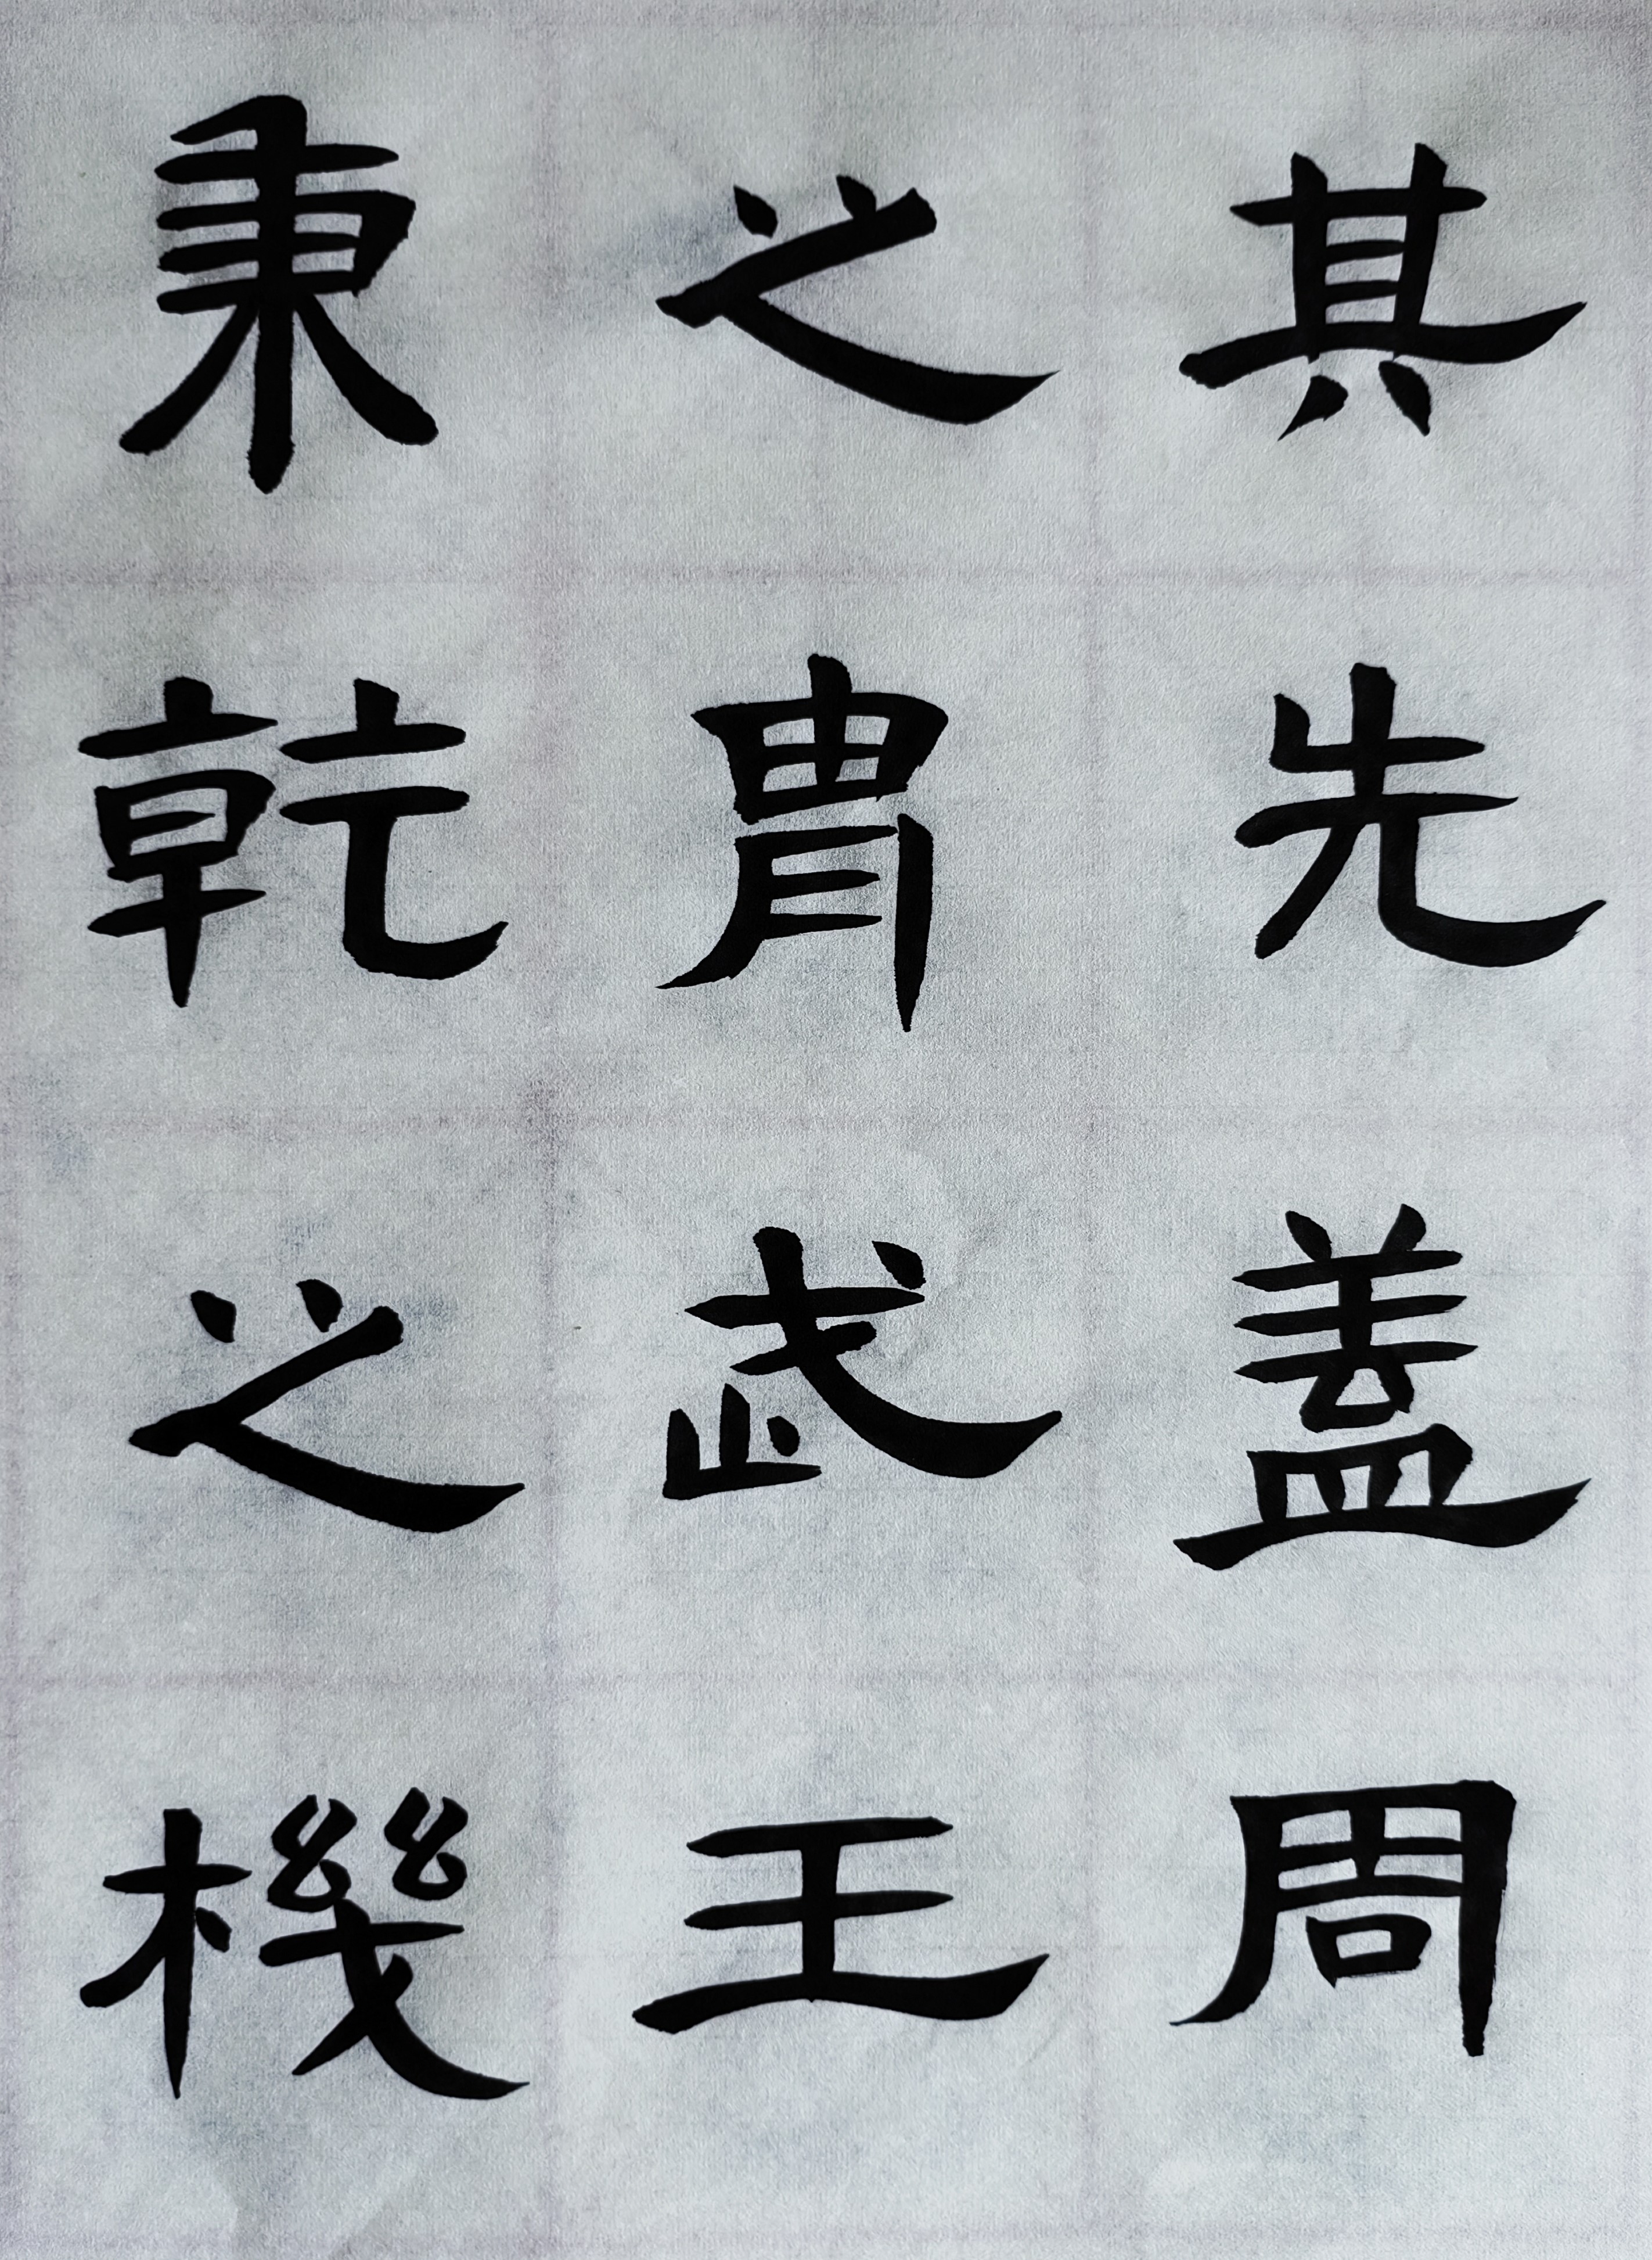 其先盖周
之胄武王
秉乾之機